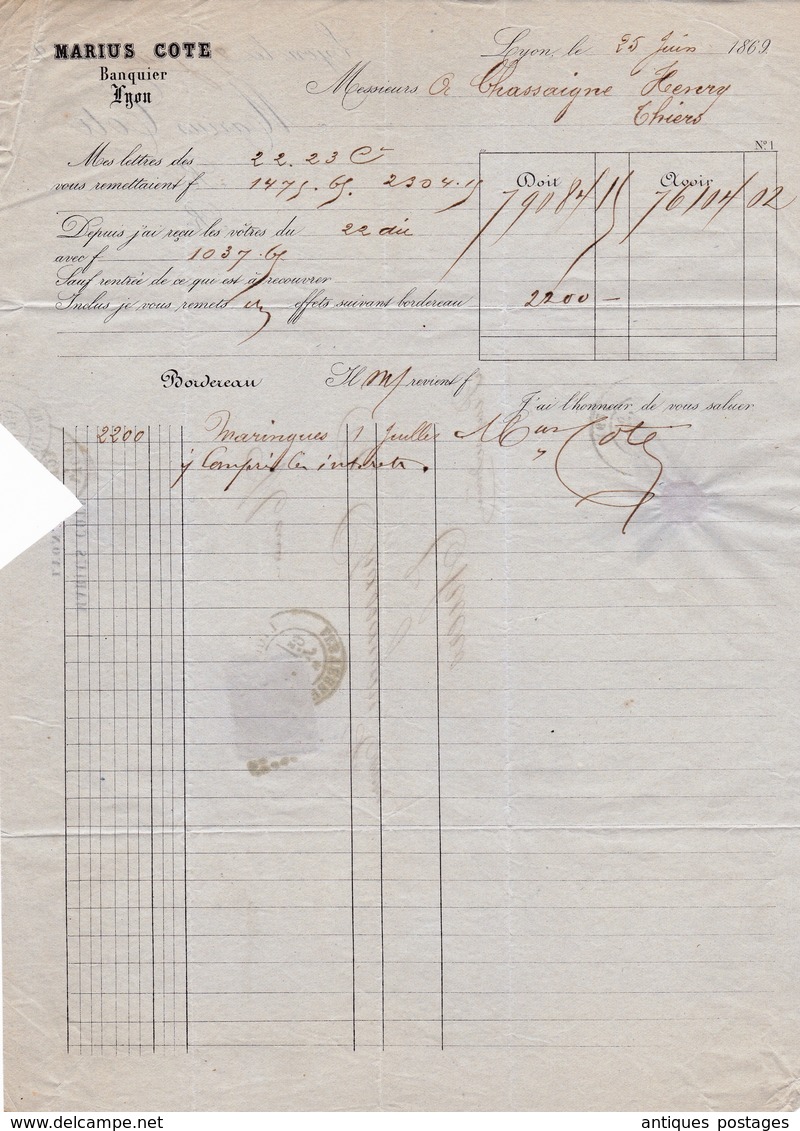 MARIUS COTE
Banquier
Lyon
Lyon, le 25 Juin 1869.
Messieurs Chassaigne Henry
Thiers
N° 1
Mes lettres des 22. 23 Ct
vous remettaient f 1475.65. 2304.15
Doit
Avoir
79084 15
76104 02
Depuis j'ai reçu les vôtres du 22 du
avec f 1037.65
Sauf rentrée de ce qui est à recouvrer
Inclus je vous remets effets suivant bordereau
2200 —
Bordereau
Il m/ revient f
J'ai l'honneur de vous saluer
2200 Maringues 1 Juillet
Mus Cote
y compris les intérêts.
antiques postages